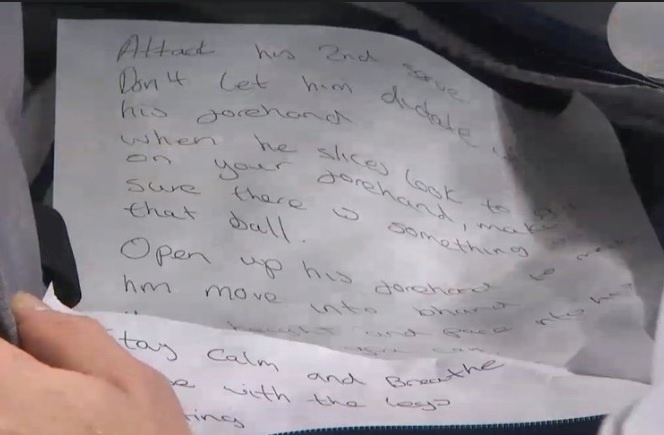 Attack his 2nd serve
Don't let him dictate
his forehand
when he slices look to
on your forehand, make
sure there is something
that ball.
Open up his forehand to
him move into bhand
height and pace into
can
tay Calm and Breathe
e with the legs
ing